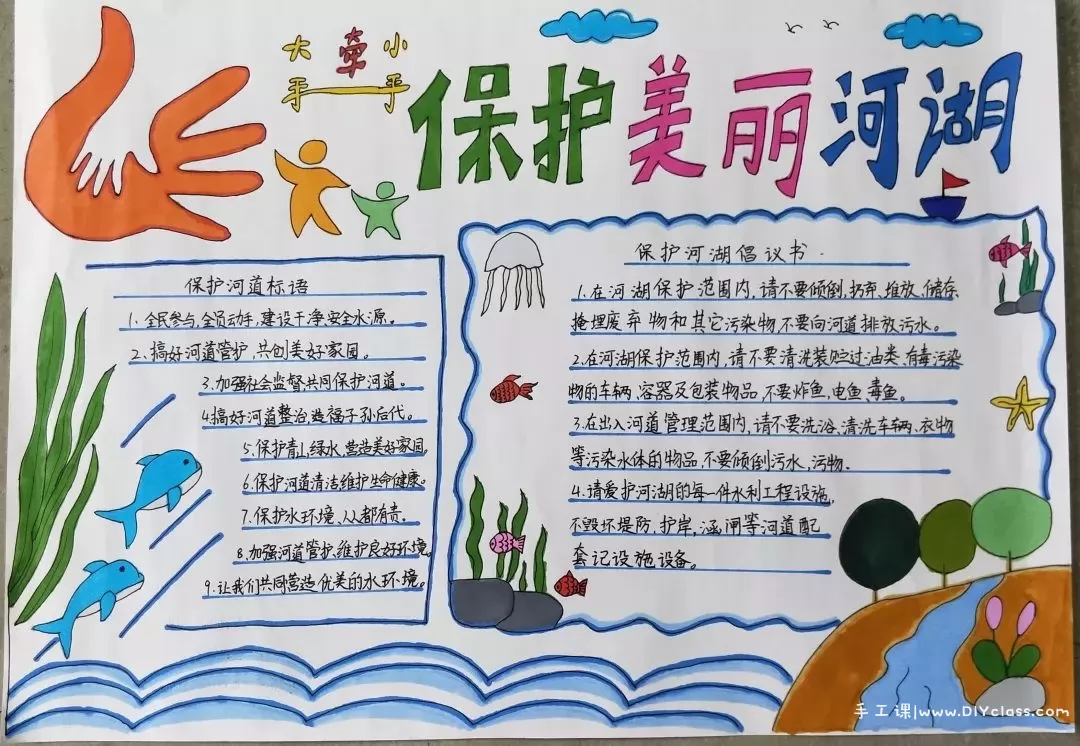 大牵小
手一手
保护美丽河湖
保护河道标语
1.全民参与,全员动手,建设干净,安全水源。
2.搞好河道管护,共创美好家园。
3.加强社会监督,共同保护河道。
4.搞好河道整治,造福子孙后代。
5.保护青山,绿水,营造美好家园。
6.保护河道清洁,维护生命健康。
7.保护水环境,人人都有责。
8.加强河道管护,维护良好环境。
9.让我们共同营造优美的水环境。
保护河湖倡议书.
1.在河湖保护范围内,请不要倾倒,扔弃、堆放、储存、
掩埋废弃物和其它污染物,不要向河道排放污水。
2.在河湖保护范围内,请不要清洗装贮过油类、有毒污染
物的车辆、容器及包装物品,不要炸鱼,电鱼、毒鱼。
3.在出入河道管理范围内,请不要洗浴、清洗车辆、衣物
等污染水体的物品,不要倾倒污水,污物.
4.请爱护河湖的每一件水利工程设施,
不毁坏堤防、护岸,涵,闸等河道配
套记设施设备。
手工课|www.DIYclass.com